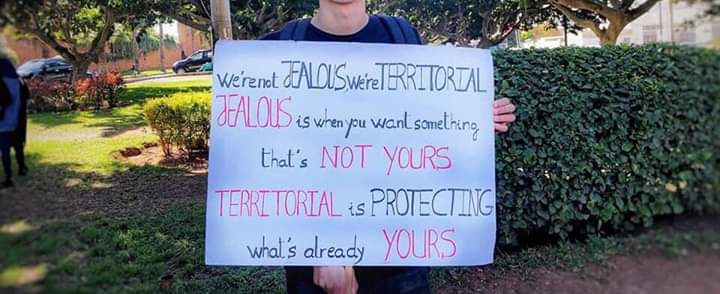 We're not JEALOUS, we're TERRITORIAL
JEALOUS is when you want something
that's NOT YOURS
TERRITORIAL is PROTECTING
what's already YOURS